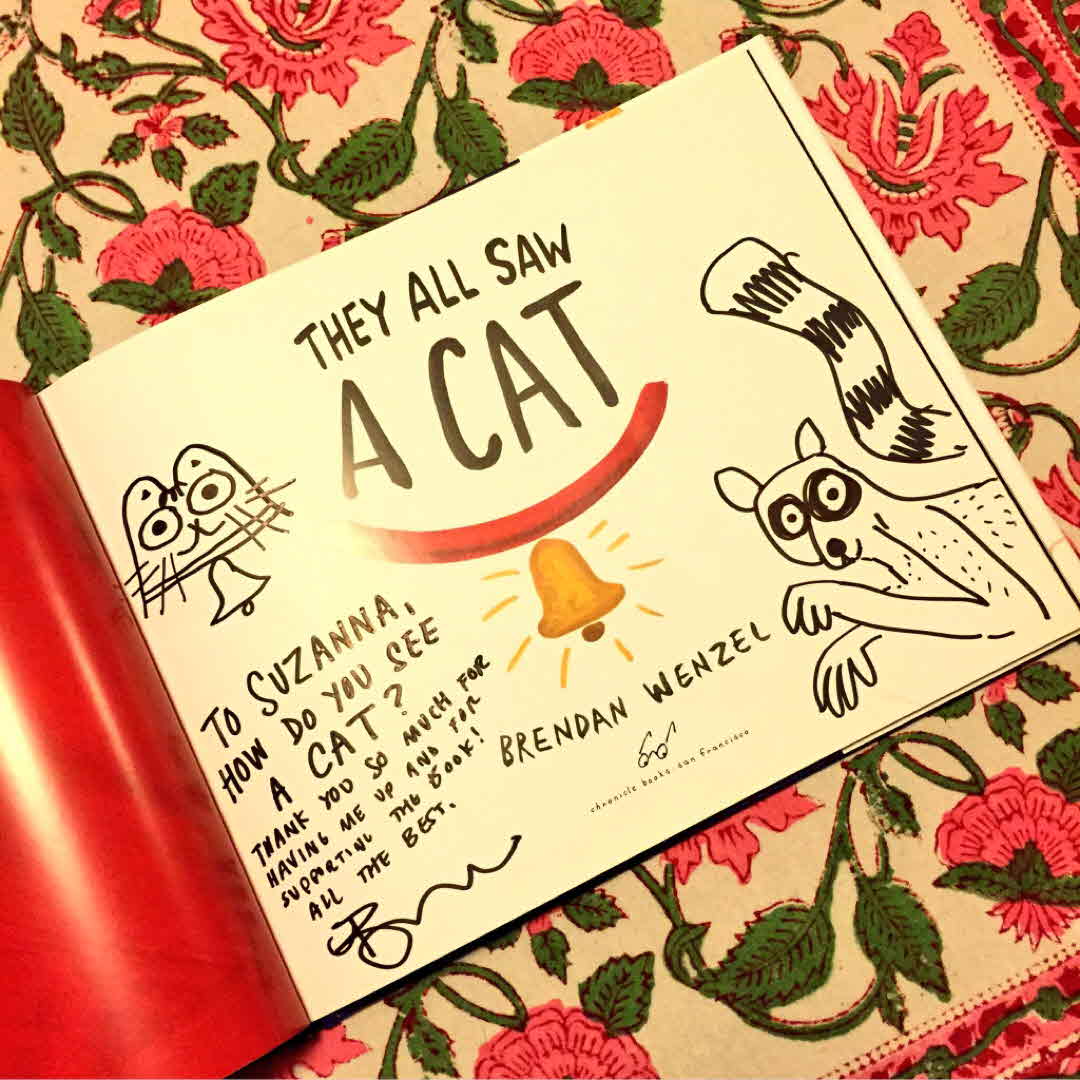 THEY ALL SAW
A CAT
TO SUZANNA,
HOW DO YOU SEE
A CAT?
THANK YOU SO MUCH FOR
HAVING ME UP AND FOR
SUPPORTING THE BOOK!
ALL THE BEST.
BRENDAN WENZEL
chronicle books san francisco